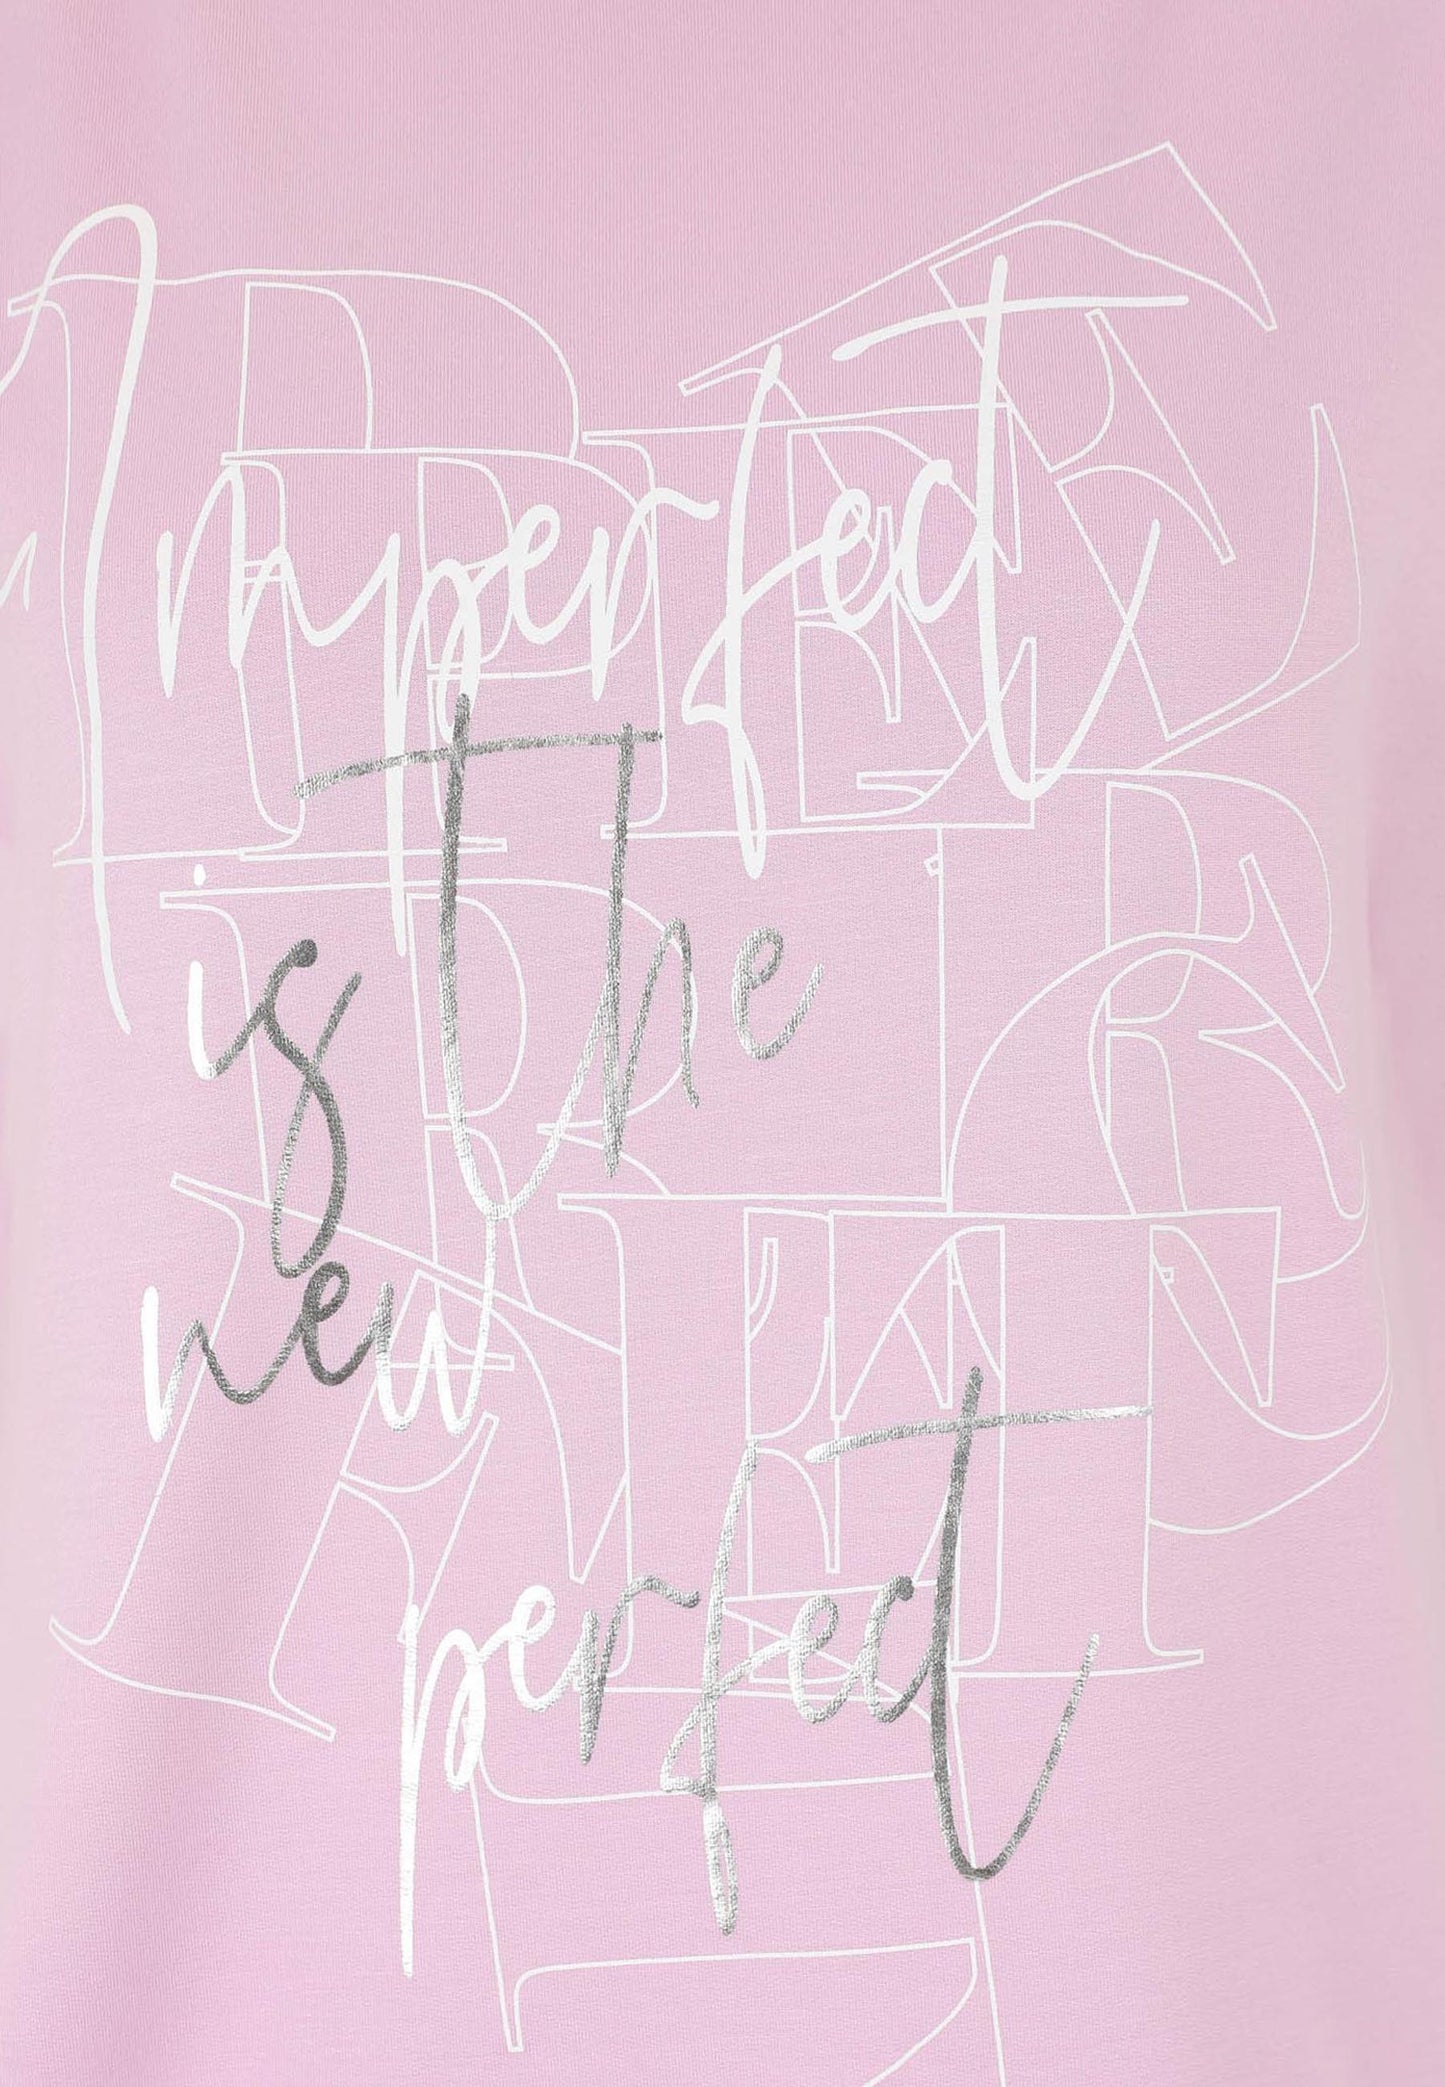 Imperfect
is The
new
perfect